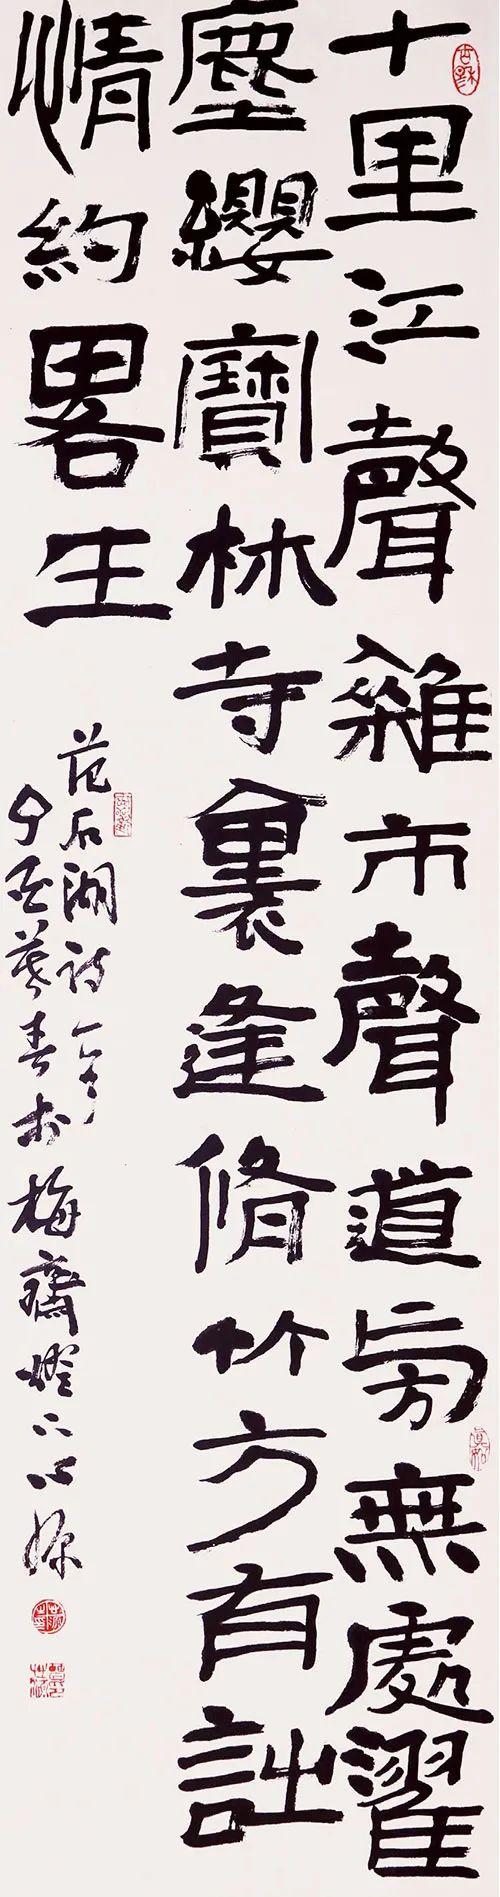 十里江聲雜市聲道旁無處濯
塵纓寶林寺裏逢脩竹方有詩
情約畧生
范石湖詩一首
丁酉暮春於梅齋燈下心源